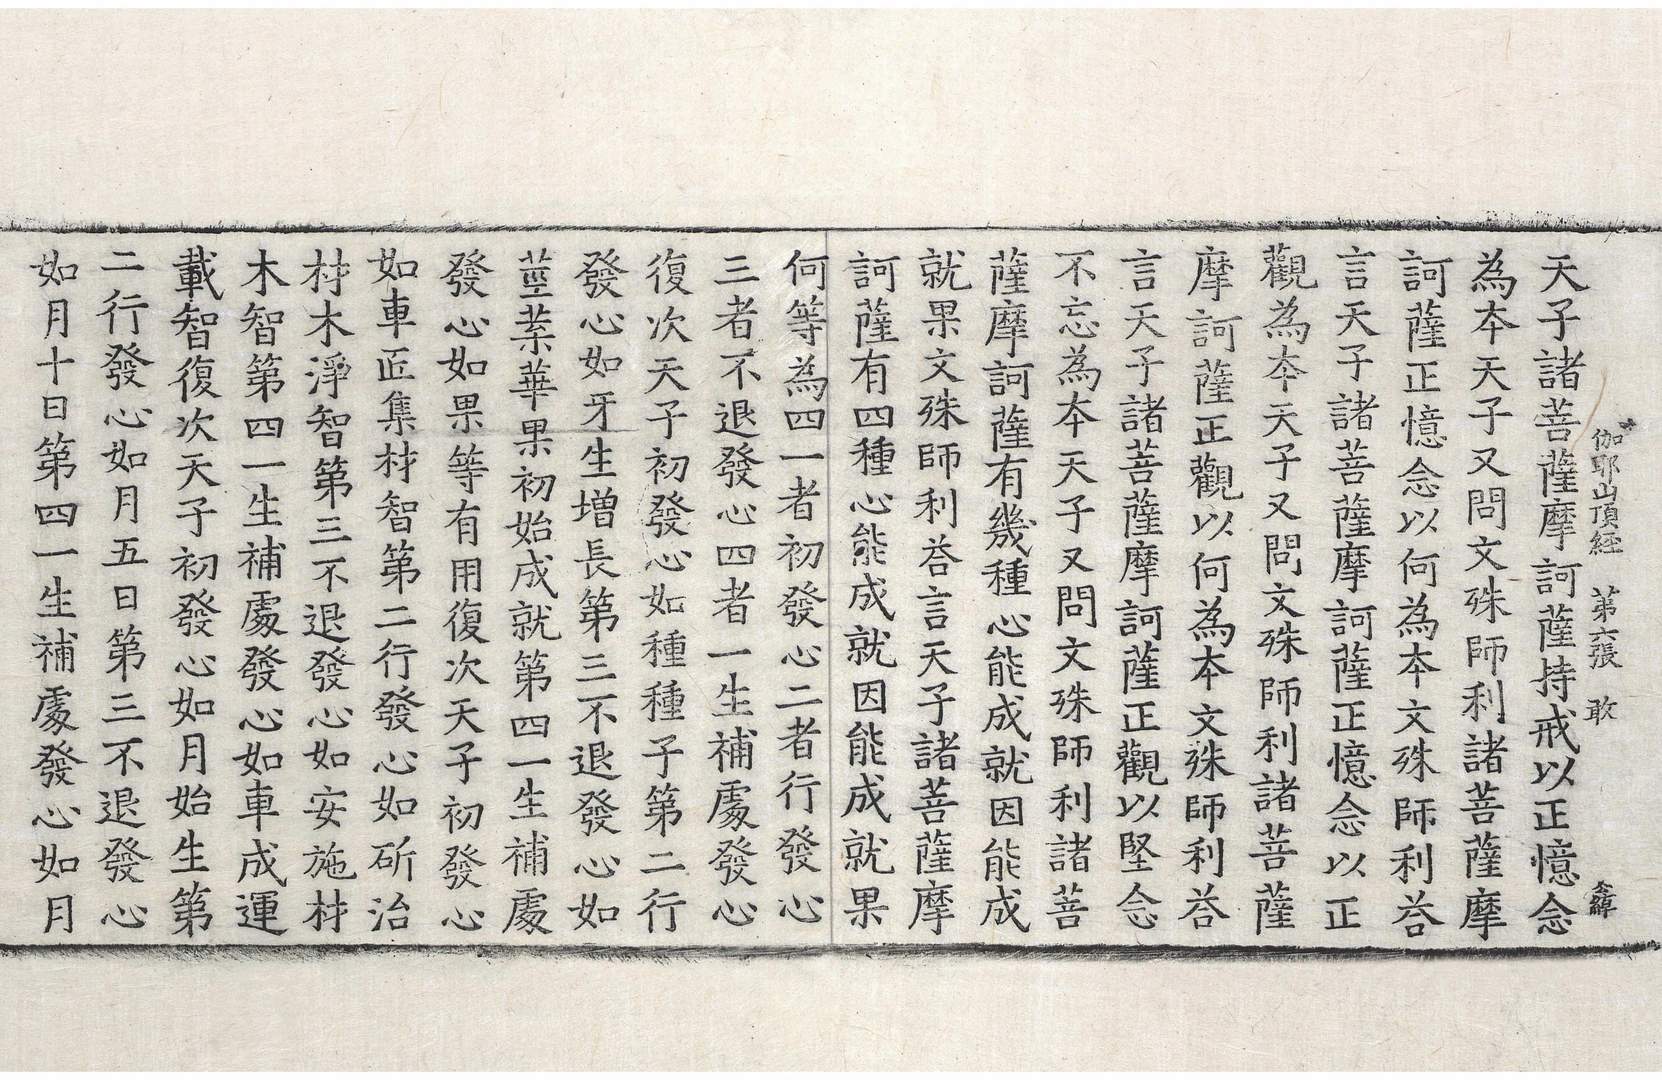 伽耶山頂経　第六張　敢
天子諸菩薩摩訶薩持戒以正憶念
為夲天子又問文殊師利諸菩薩摩
訶薩正憶念以何為夲文殊師利荅
言天子諸菩薩摩訶薩正憶念以正
觀為夲天子又問文殊師利諸菩薩
摩訶薩正觀以何為夲文殊師利荅
言天子諸菩薩摩訶薩正觀以堅念
不忘為夲天子又問文殊師利諸菩
薩摩訶薩有幾種心能成就因能成
就果文殊師利荅言天子諸菩薩摩
訶薩有四種心能成就因能成就果
何等為四一者初發心二者行發心
三者不退發心四者一生補處發心
復次天子初發心如種種子第二行
發心如牙生增長第三不退發心如
莖葉華果初始成就第四一生補處
發心如果等有用復次天子初發心
如車匠集材智第二行發心如斫治
材木淨智第三不退發心如安施材
木智第四一生補處發心如車成運
載智復次天子初發心如月始生第
二行發心如月五日第三不退發心
如月十日第四一生補處發心如月